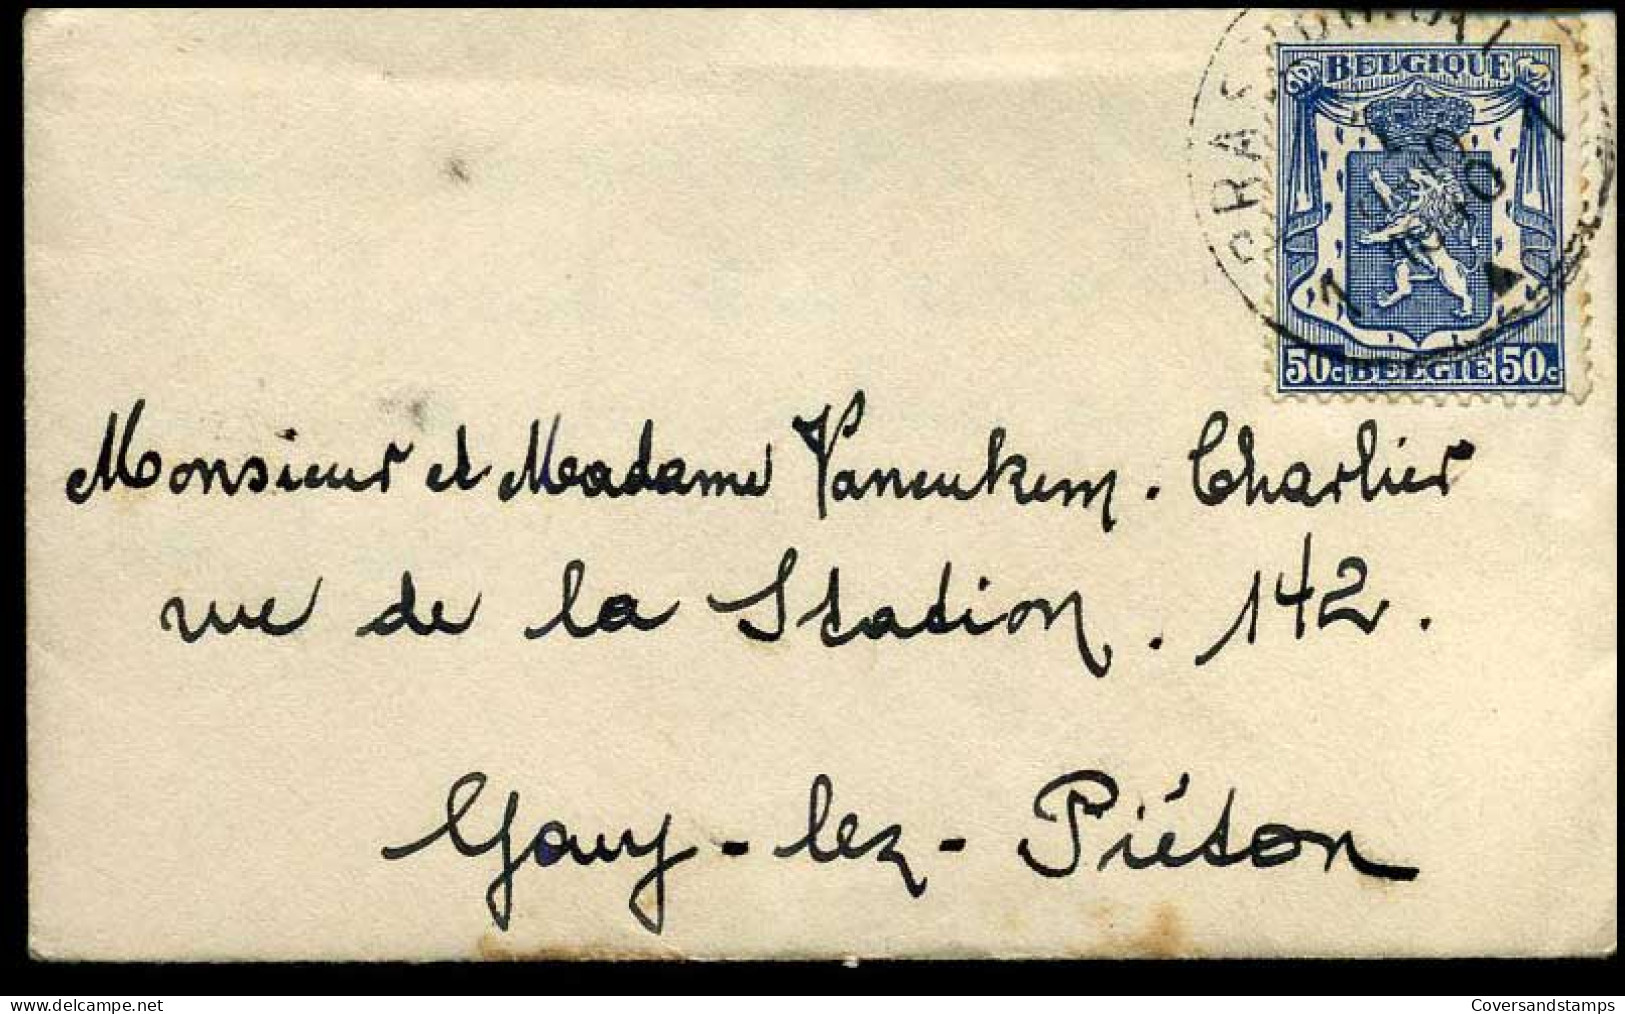 BELGIQUE
1940
50c BELGIË 50c
Monsieur et Madame Vaneukem. Charlier
rue de la Station. 142.
Gouy-lez-Piéton
Coversandstamps